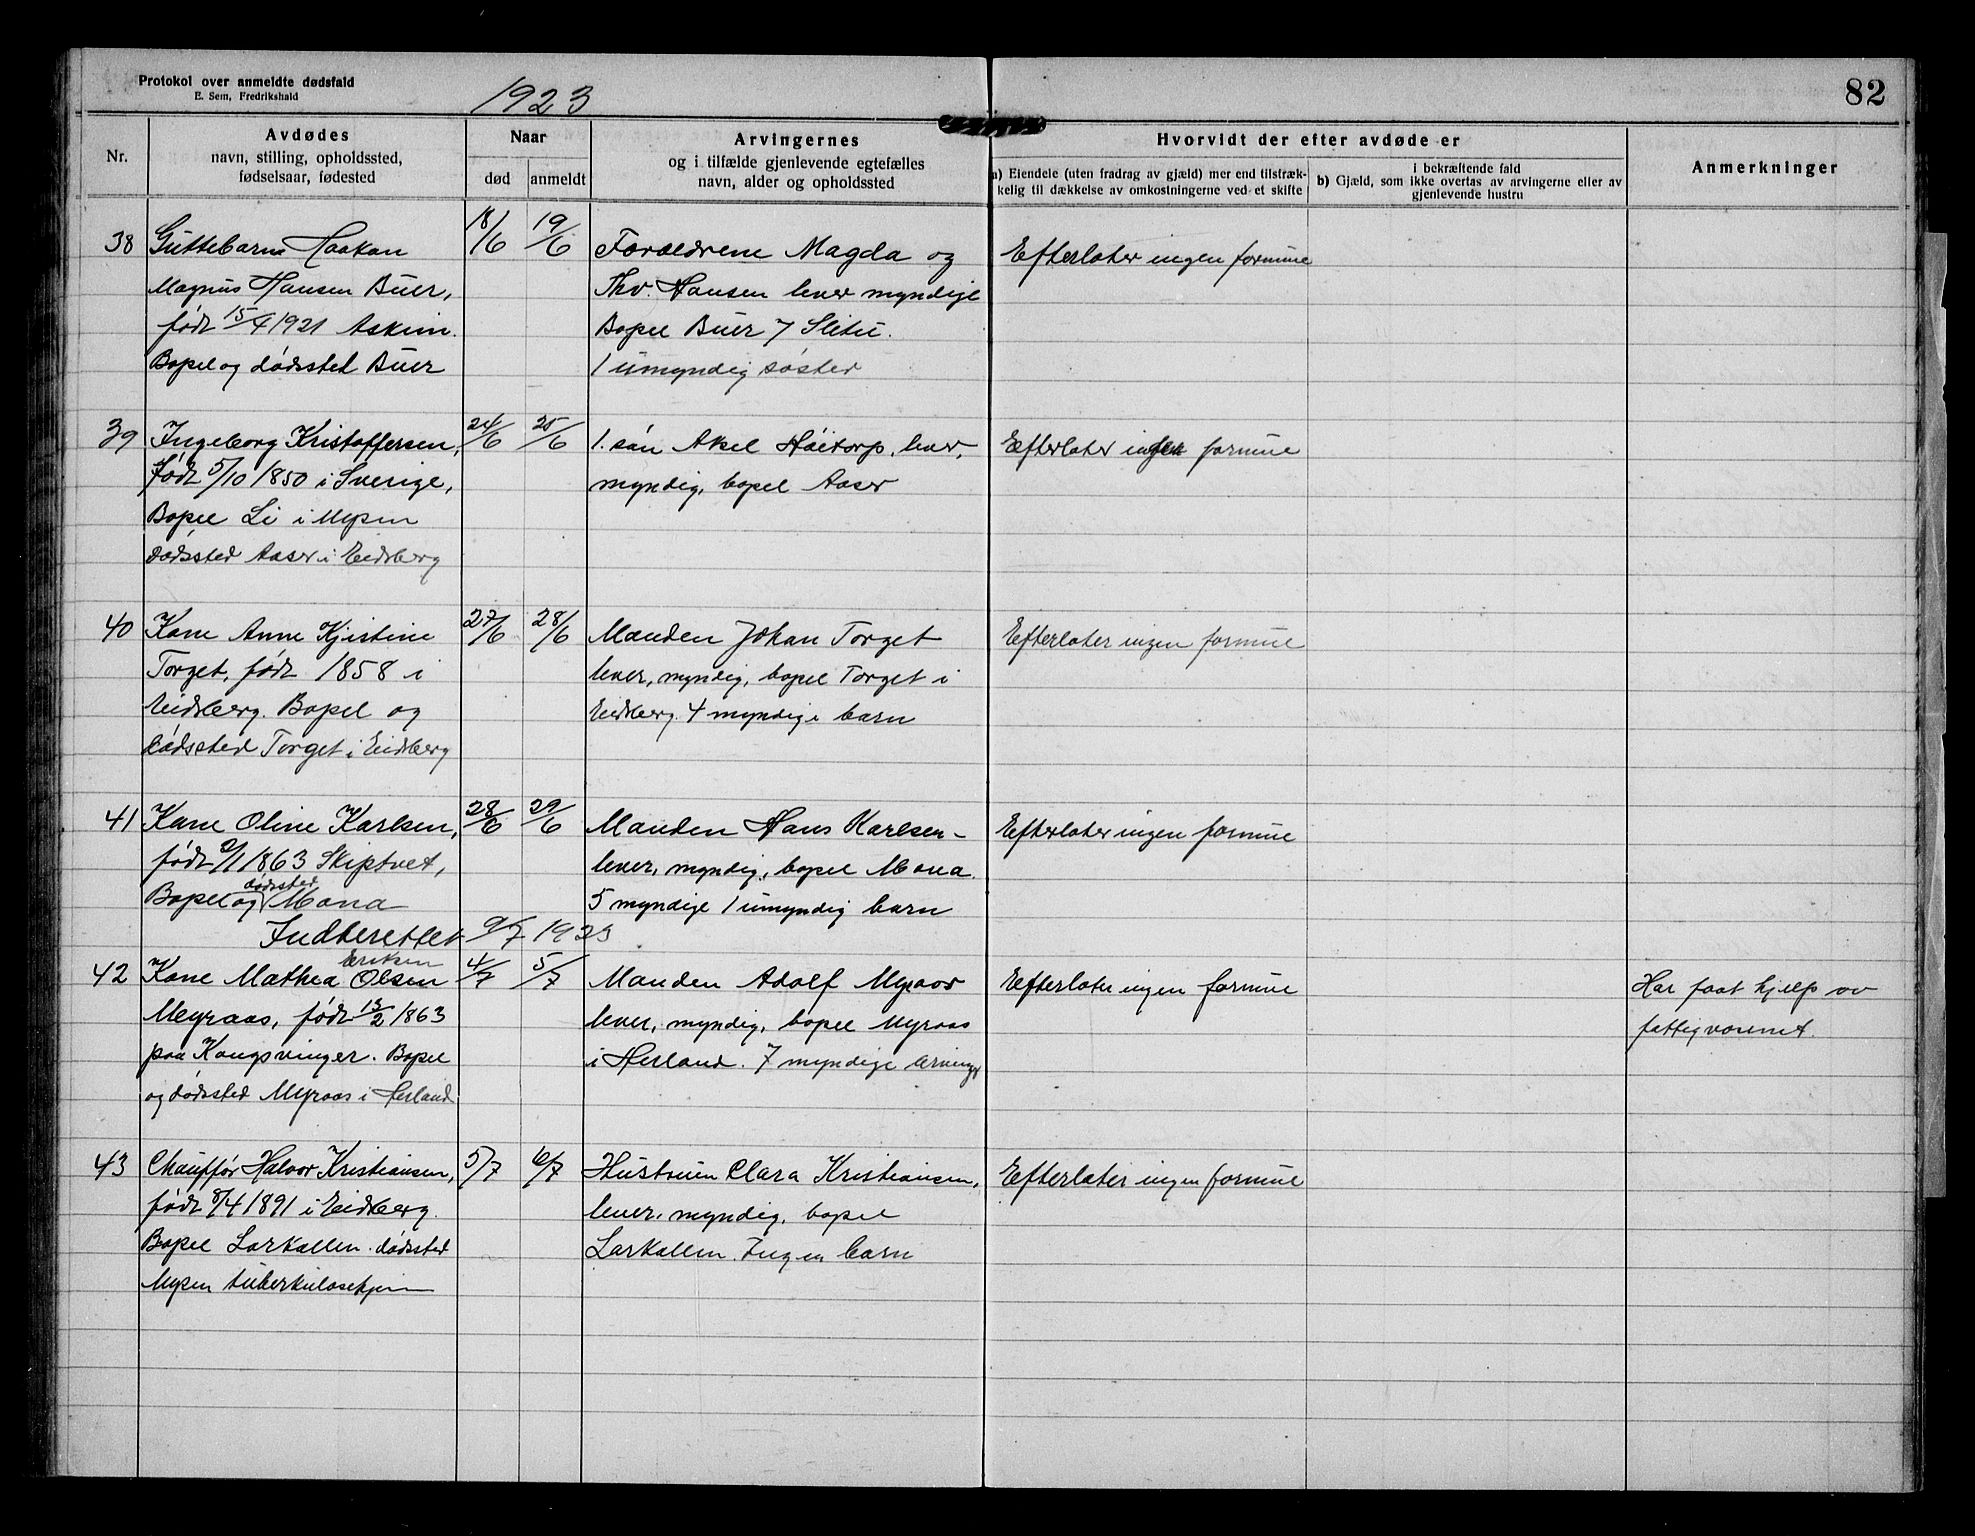 Protokol over anmeldte dødsfald
E. Sem, Fredrikshald
1923
82
Nr.
Avdødes
navn, stilling, opholdssted,
fødselsaar, fødested
Naar
død
anmeldt
Arvingernes
og i tilfælde gjenlevende egtefælles
navn, alder og opholdssted
Hvorvidt der efter avdøde er
a) Eiendele (uten fradrag av gjæld) mer end tilstræk-
kelig til dækkelse av omkostningerne ved et skifte
i bekræftende fald
b) Gjæld, som ikke overtas av arvingerne eller av
gjenlevende hustru
Anmerkninger
38
Guttebarn Haakon
Magnus Hansen Buer,
født 15/4 1921 Askim.
Bopel og dødssted Buer
18/6
19/6
Forældrene Magda og
Thv. Hansen lever myndige
Bopel Buer i Slitu.
1 umyndig søster
Efterlater ingen formue
39
Ingeborg Kristoffersen,
født 5/10 1850 i Sverige,
Bopel Li i Mysen
dødssted Aaser i Eidsberg
24/6
25/6
1. søn Aksel Høitorp, lever,
myndig, bopel Aaser
Efterlater ingen formue
40
Kone Anne Kjistine
Torget, født 1858 i
Eidsberg. Bopel og
dødssted Torget i Eidsberg
27/6
28/6
Manden Johan Torget
lever, myndig, bopel Torget i
Eidsberg. 4 myndige barn
Efterlater ingen formue
41
Kone Oline Karlsen,
født 2/1 1863 Skiptvet,
Bopel og dødssted Mona
28/6
29/6
Manden Hans Karlsen -
lever, myndig, bopel Mona.
5 myndige 1 umyndig barn
Efterlater ingen formue
Indberettet 9/7 1923
42
Kone Mathea Eriksen Olsen
Myraas, født 13/2 1863
paa Kongsvinger. Bopel
og dødssted Myraas i Herland
4/7
5/7
Manden Adolf Myraas
lever, myndig, bopel Myraas
i Herland. 7 myndige arvinger
Efterlater ingen formue
Har faat hjelp av
fattigvæsenet.
43
Chauffør Halvor Kristiansen,
født 8/4 1891 i Eidsberg.
Bopel Larkollen. dødssted
Mysen tuberkulosehjem
5/7
6/7
Hustruen Clara Kristiansen,
lever, myndig, bopel
Larkollen. Ingen barn
Efterlater ingen formue